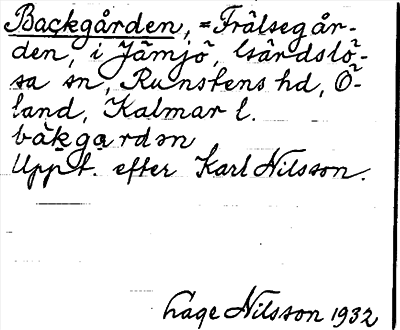 Backgården, = Frälsegår-
den, i Jämjö, Gärdslö-
sa sn, Runstens hd, Ö-
land, Kalmar l.
bàkgardən
Uppt. efter Karl Nilsson.
Lage Nilsson 1932